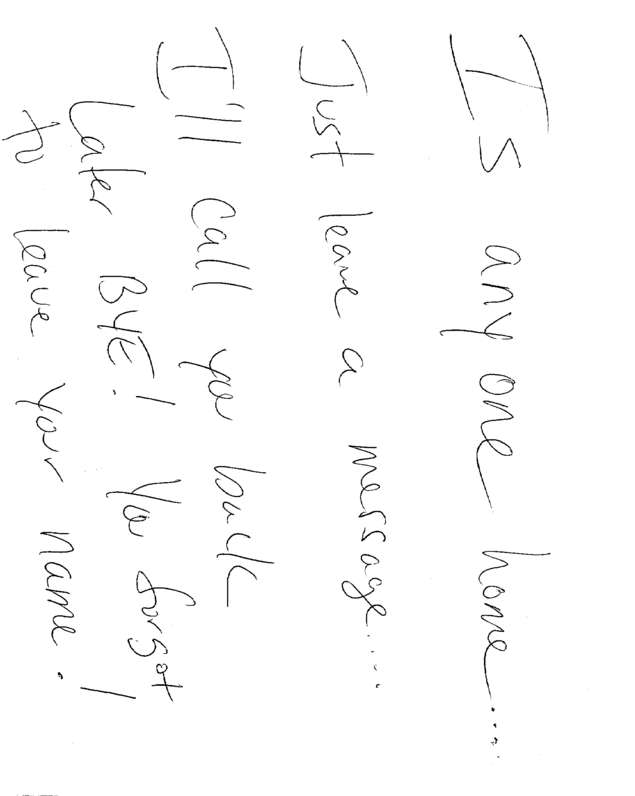 Is anyone home....
Just leave a message....
I'll call you back
later BYE! You forgot
to leave your name!